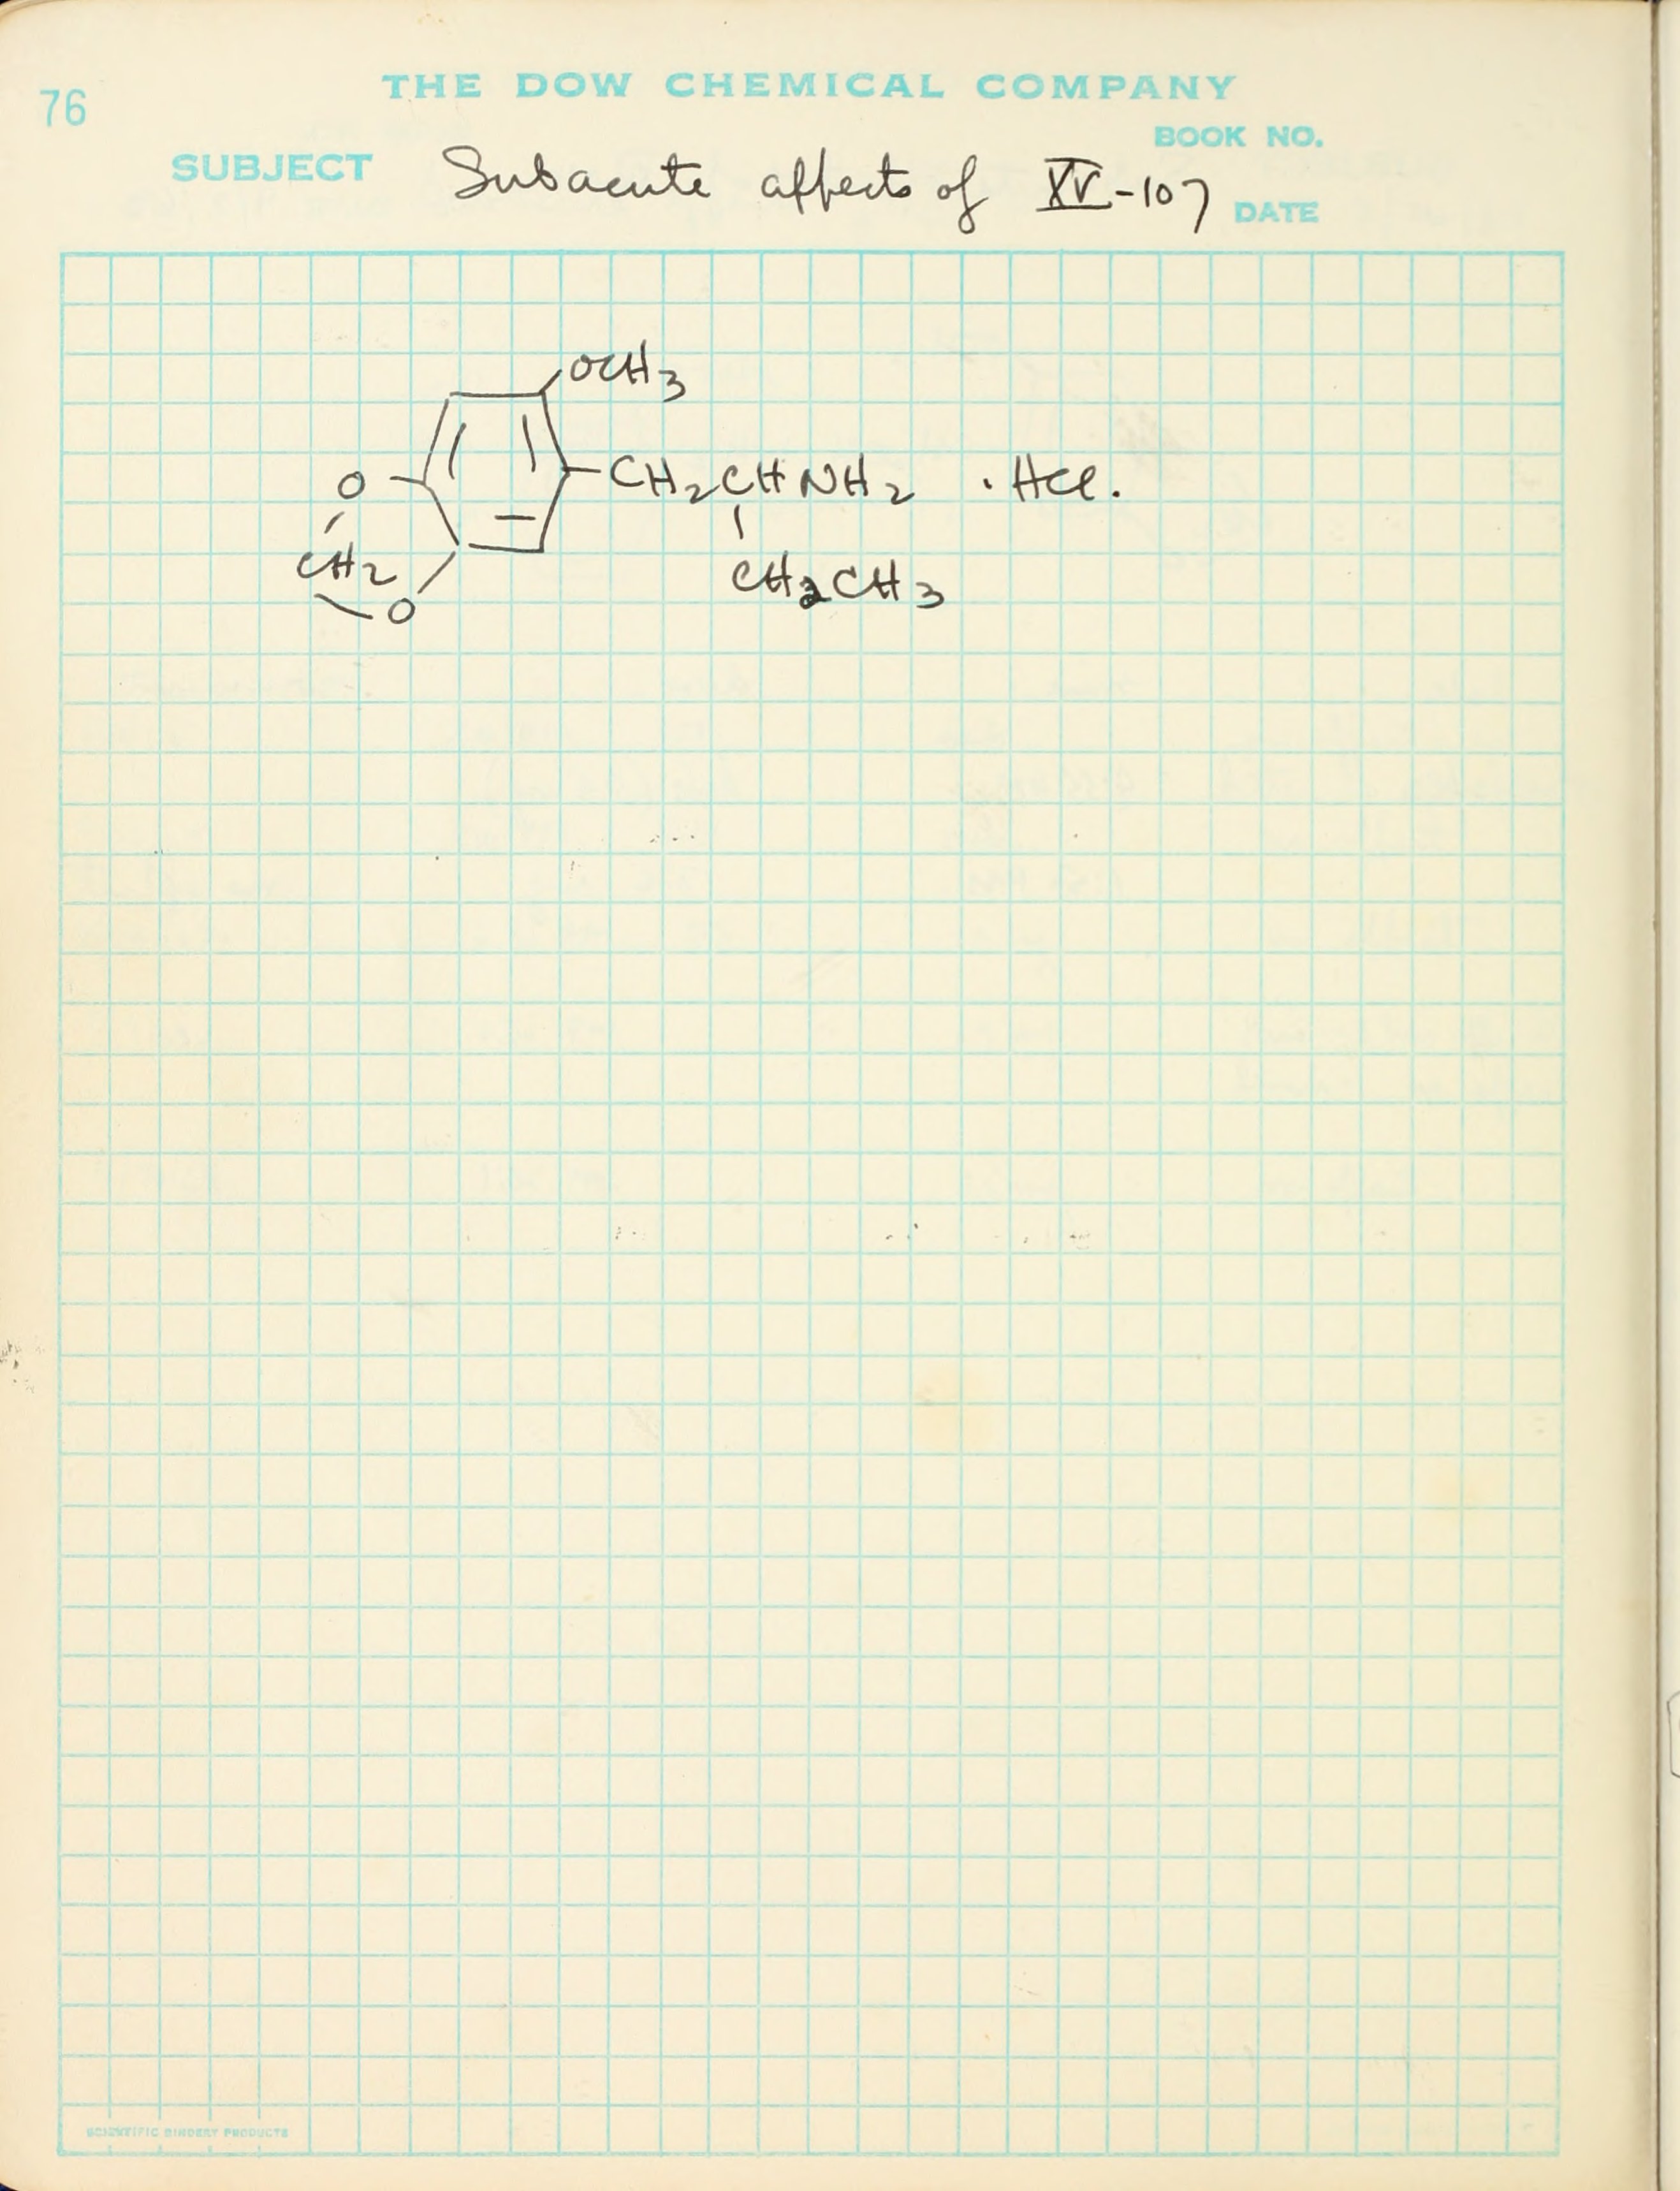 THE DOW CHEMICAL COMPANY
76
BOOK NO.
SUBJECT Subacute affects of XV-107 DATE
OCH3
O CH2CHNH2 · HCl.
CH2 CH2CH3
O
SCIENTIFIC BINDERY PRODUCTS